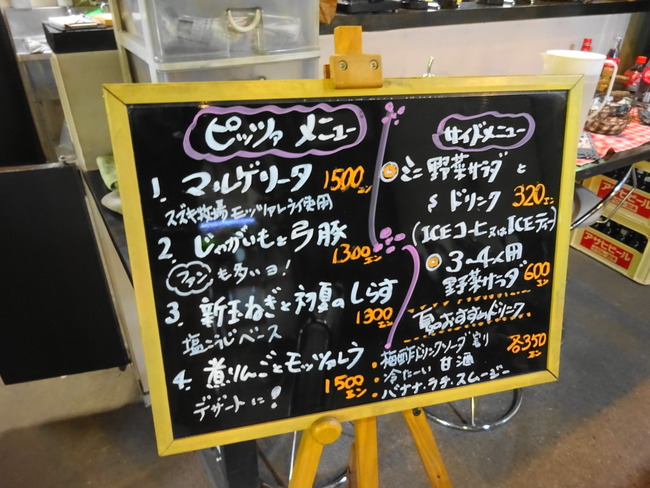 ピッツァ メニュー
1. マルゲリータ 1500エン
スズキ牧場モッツァレラ使用
2. じゃがいもと弓豚 1300エン
ファンも多いヨ!
3. 新玉ねぎと初夏のしらす 1300エン
塩こうじベース
4. 煮りんごとモッツァレラ 1500エン
デザートに!
サイドメニュー
ミニ野菜サラダと
ドリンク 320エン
(ICEコーヒー又はICEティー)
3〜4人用
野菜サラダ 600エン
夏のおすすめドリンク
・梅酢ドリンクソーダ割り 各350エン
・冷たーい 甘酒
・バナナ・ラテ・スムージー
アサヒビール